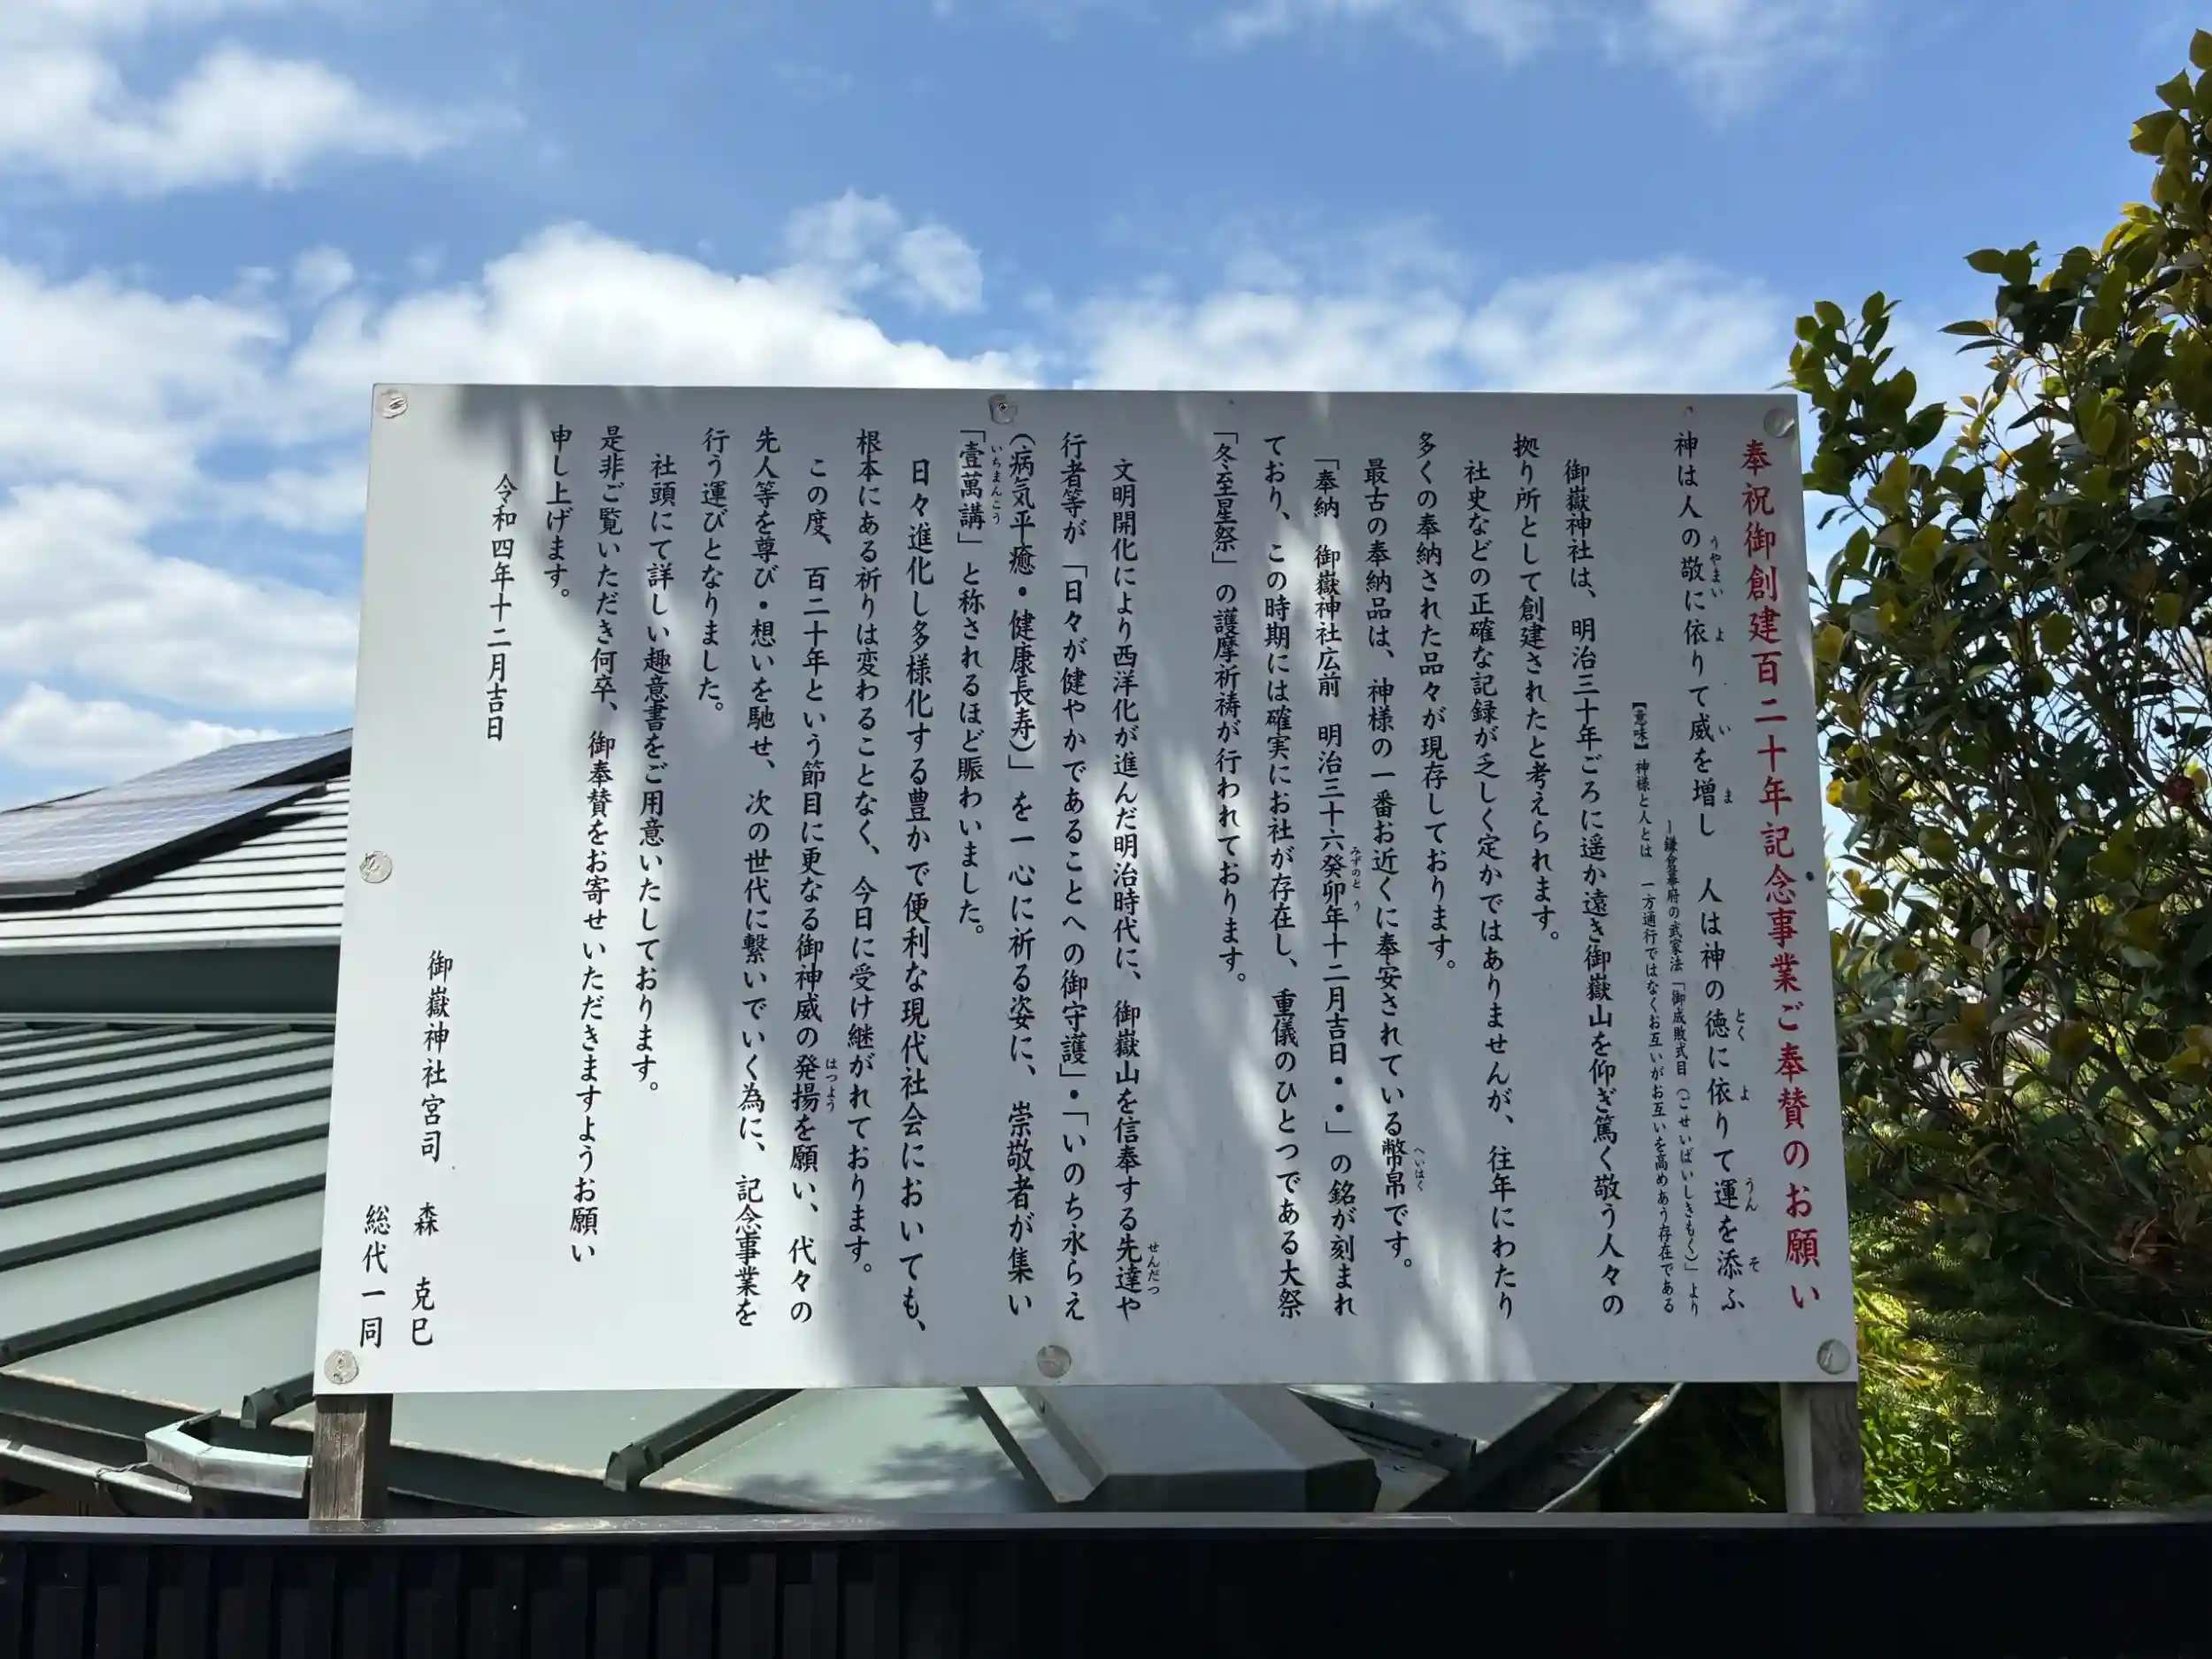 奉祝御創建百二十年記念事業ご奉賛のお願い
神は人の敬に依りて威を増し　人は神の徳に依りて運を添ふ
うやまい　よ　い　ま　とく　よ　うん　そ
―鎌倉幕府の武家法「御成敗式目（ごせいばいしきもく）」より
【意味】神様と人とは　一方通行ではなくお互いがお互いを高めあう存在である
御嶽神社は、明治三十年ごろに遥か遠き御嶽山を仰ぎ篤く敬う人々の
拠り所として創建されたと考えられます。
社史などの正確な記録が乏しく定かではありませんが、往年にわたり
多くの奉納された品々が現存しております。
最古の奉納品は、神様の一番お近くに奉安されている幣帛です。
へいはく
「奉納　御嶽神社広前　明治三十六癸卯年十二月吉日・・」の銘が刻まれ
みずのと　う
ており、この時期には確実にお社が存在し、重儀のひとつである大祭
「冬至星祭」の護摩祈祷が行われております。
文明開化により西洋化が進んだ明治時代に、御嶽山を信奉する先達や
せんだつ
行者等が「日々が健やかであることへの御守護」・「いのち永らえ
（病気平癒・健康長寿）」を一心に祈る姿に、崇敬者が集い
「壹萬講」と称されるほど賑わいました。
いちまんこう
日々進化し多様化する豊かで便利な現代社会においても、
根本にある祈りは変わることなく、今日に受け継がれております。
この度、百二十年という節目に更なる御神威の発揚を願い、代々の
はつよう
先人等を尊び・想いを馳せ、次の世代に繋いでいく為に、記念事業を
行う運びとなりました。
社頭にて詳しい趣意書をご用意いたしております。
是非ご覧いただき何卒、御奉賛をお寄せいただきますようお願い
申し上げます。
令和四年十二月吉日
御嶽神社宮司　森　克巳
総代一同